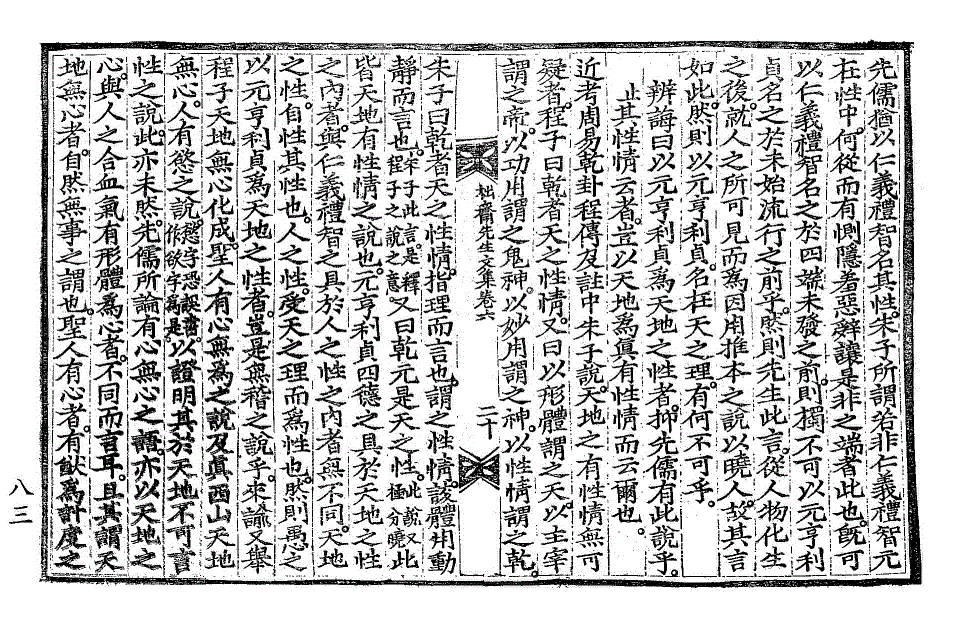 先儒猶以仁義禮智名其性。朱子所謂若非仁義禮智元
在性中。何從而有惻隱羞惡辭讓是非之端者此也。旣可
以仁義禮智名之於四端未發之前。則獨不可以元亨利
貞名之於未始流行之前乎。然則先生此言。從人物化生
之後。就人之所可見而爲因用推本之說以曉人。故其言
如此。然則以元亨利貞。名在天之理。有何不可乎。
辨誨曰以元亨利貞爲天地之性者。抑先儒有此說乎。
止其性情云者。豈以天地爲眞有性情而云爾也。
近考周易乾卦程傳及註中朱子說。天地之有性情無可
疑者。程子曰乾者天之性情。又曰以形體謂之天。以主宰
謂之帝。以功用謂之鬼神。以妙用謂之神。以性情謂之乾。
拙齋先生文集卷六
二十
朱子曰乾者天之性情。指理而言也。謂之性情。該體用動
靜而言也。朱子此言。是釋程子之說之意。又曰乾元是天之性。此說又極分曉 此
皆天地有性情之說也。元亨利貞四德之具於天地之性
之內者。與仁義禮智之具於人之性之內者無不同。天地
之性。自性其性也。人之性。受天之理而爲性也。然則愚之
以元亨利貞爲天地之性者。豈是無稽之說乎。來諭又擧
程子天地無心化成。聖人有心無爲之說及眞西山天地
無心。人有慾之說。慾字恐誤書。作欲字爲是。以證明其於天地不可言
性之說。此亦未然。先儒所論有心無心之語。亦以天地之
心。與人之合血氣有形體爲心者。不同而言耳。且其謂天
地無心者。自然無事之謂也。聖人有心者。有猷爲計度之
八三